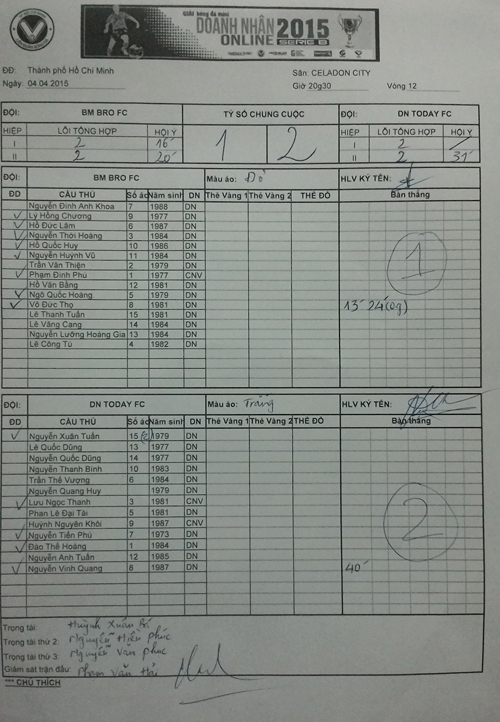 Giải bóng đá mini
DOANH NHÂN 2015
ONLINE SERIE B
ĐĐ: Thành phố Hồ Chí Minh
Ngày: 04.04.2015
Sân: CELADON CITY
Giờ 20g30 Vòng 12
ĐỘI: BM BRO FC TỶ SỐ CHUNG CUỘC ĐỘI: DN TODAY FC
HIỆP LỖI TỔNG HỢP HỘI Ý 1 2 HIỆP LỖI TỔNG HỢP HỘI Ý
I 2 16' I 2
II 2 20' II 2 31'
ĐỘI: BM BRO FC Màu áo: Đỏ HLV KÝ TÊN:
ĐD CẦU THỦ Số áo Năm sinh DN Thẻ Vàng 1 Thẻ Vàng 2 THẺ ĐỎ Bàn thắng
Nguyễn Đình Anh Khoa 7 1988 DN
Lý Hồng Chương 9 1977 DN
Hồ Đức Lâm 6 1987 DN
Nguyễn Thới Hoàng 3 1984 DN
Hồ Quốc Huy 10 1986 DN
Nguyễn Huỳnh Vũ 11 1984 DN
Trần Văn Thiện 2 1979 DN
Phạm Đình Phú 1 1977 CNV
Hồ Văn Bằng 12 1981 DN
Ngô Quốc Hoàng 5 1979 DN
Võ Đức Thọ 8 1981 DN 13' 24'(og)
Lê Thanh Tuấn 15 1981 DN
Lê Văng Cang 14 1984 DN
Nguyễn Lưỡng Hoàng Gia 13 1984 DN
Lê Công Tú 4 1982 DN
1
ĐỘI: DN TODAY FC Màu áo: Trắng HLV KÝ TÊN:
ĐD CẦU THỦ Số áo Năm sinh DN Thẻ Vàng 1 Thẻ Vàng 2 THẺ ĐỎ Bàn thắng
Nguyễn Xuân Tuấn 15 1979 DN
Lê Quốc Dũng 13 1977 DN
Nguyễn Quốc Dũng 14 1977 DN
Nguyễn Thanh Bình 10 1983 DN
Trần Thế Vượng 6 1984 DN
Nguyễn Quang Huy 1979 DN
Lưu Ngọc Thanh 3 1981 CNV
Phan Lê Đại Tài 5 1981 DN
Huỳnh Nguyên Khôi 9 1987 CNV
Nguyễn Tiến Phú 7 1973 DN
Đào Thế Hoàng 1 1984 DN
Nguyễn Anh Tuấn 12 1985 DN
Nguyễn Vinh Quang 8 1987 DN 40'
2
Trọng tài: Huỳnh Xuân
Trọng tài thứ 2: Nguyễn Hiếu Phúc
Trọng tài thứ 3: Nguyễn Văn Phúc
Giám sát trận đấu: Phạm Văn Hải
*** CHÚ THÍCH